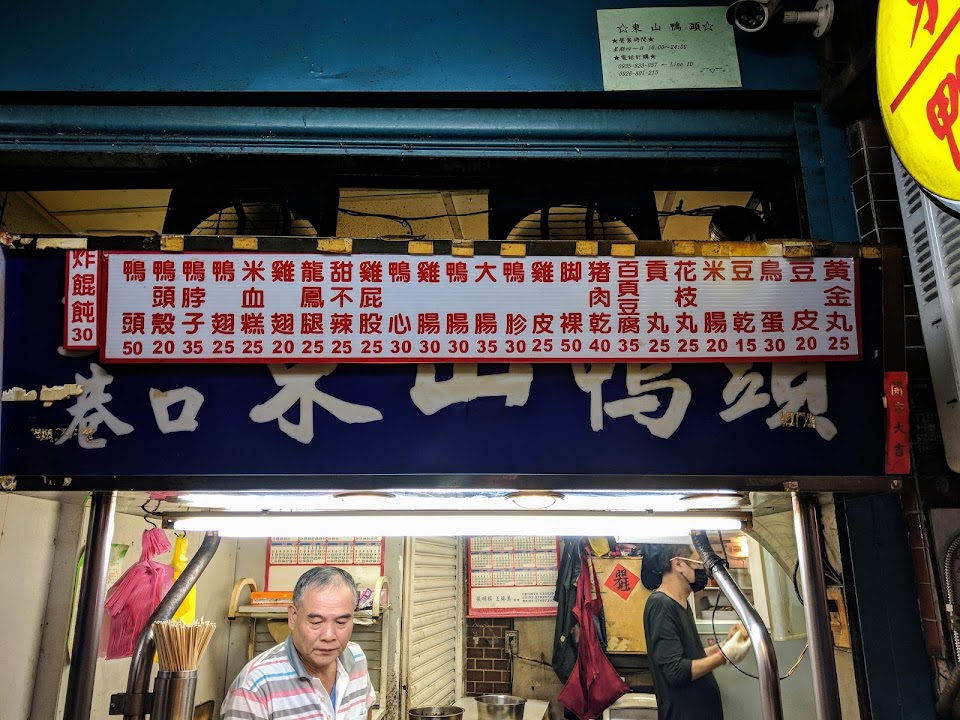 ☆東山鴨頭☆
★營業時間★
16:00~24:00
★電話訂購★
← Line ID
炸餛飩 30
鴨頭 50
鴨頭殼 20
鴨脖子 35
鴨翅 25
米血糕 25
雞翅 20
龍鳳腿 25
甜不辣 25
雞屁股 25
鴨心 30
雞腸 30
鴨腸 30
大腸 35
鴨胗 30
雞皮 25
脚裸 50
猪肉乾 40
百頁豆腐 35
貢丸 25
花枝丸 25
米腸 20
豆乾 15
鳥蛋 30
豆皮 20
黃金丸 25
巷口東山鴨頭
開市大吉